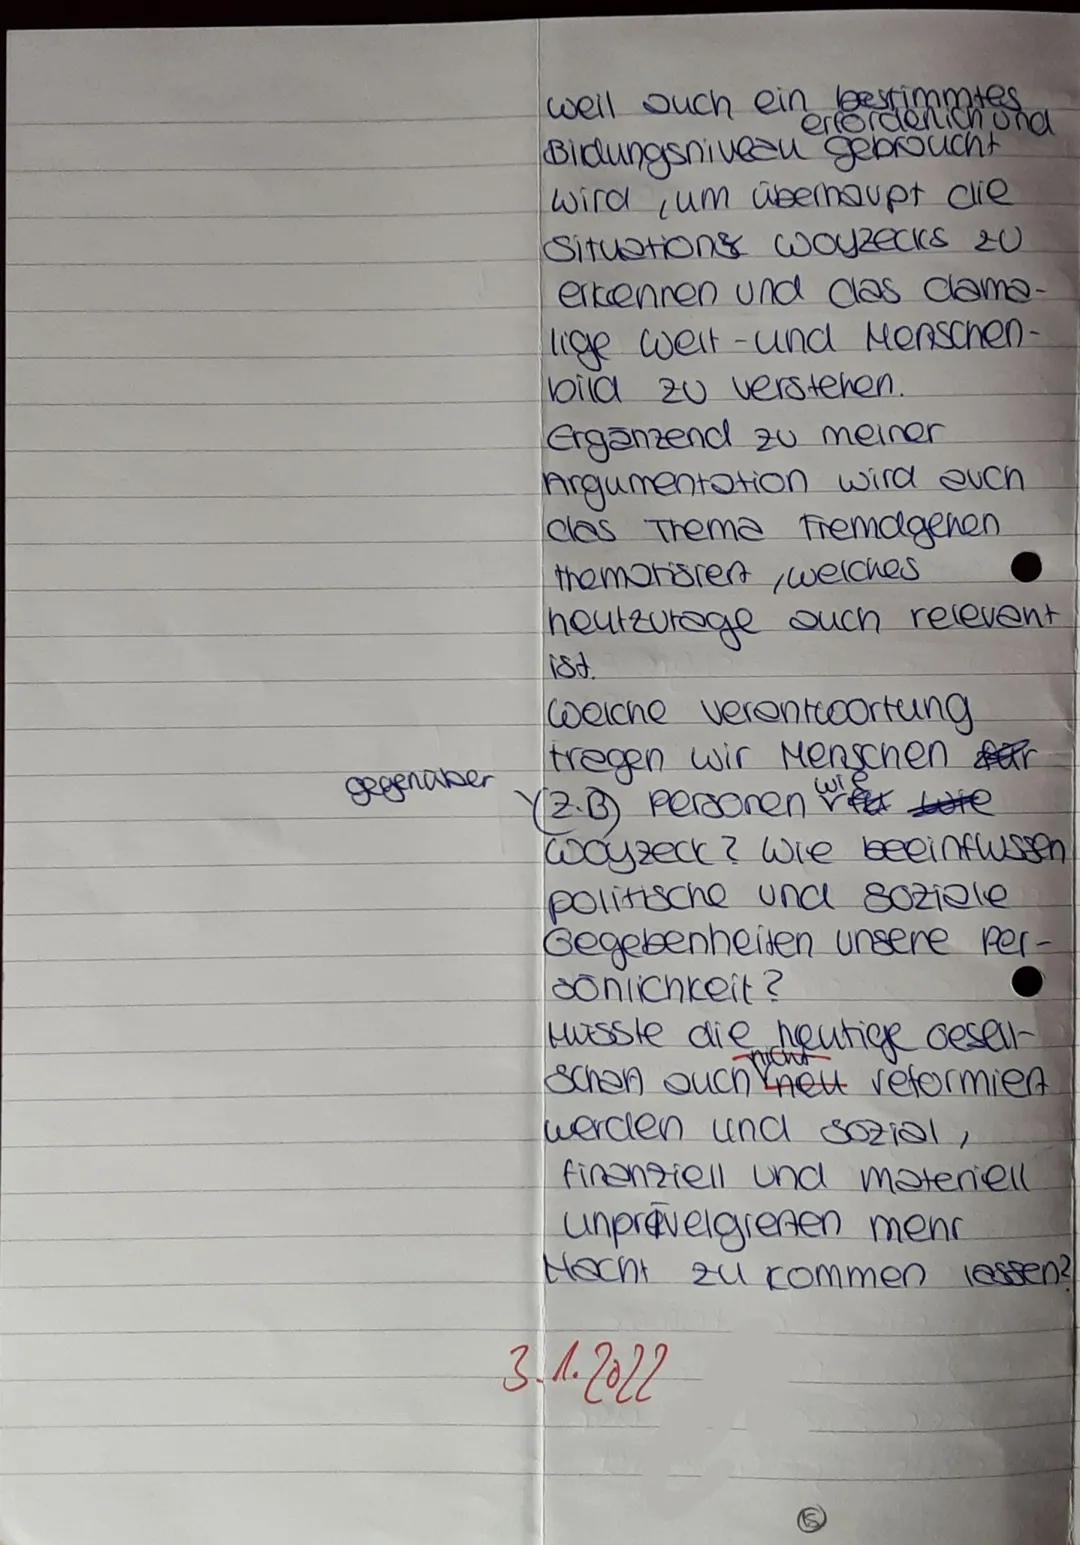 weil auch ein bestimmtes
erforderlich und
Bildungsniveau gebraucht
wird, um überhaupt die
Situations Woyzecks zu
erkennen und das dama-
lige Welt- und Menschen-
bild zu verstehen.
Ergänzend zu meiner
Argumentation wird auch
das Thema Fremdgehen
thematisiert, welches
heutzutage auch relevant
ist.
Welche Verantwortung
tragen wir Menschen für
gegenüber (z.B) Personen wie
Woyzeck? Wie beeinflussen
politische und soziale
Gegebenheiten unsere Per-
sönlichkeit?
Müsste die heutige Gesell-
nicht
schaft auch neu reformiert
werden und sozial,
finanziell und materiell
unprivelgierten mehr
Macht zu kommen lassen?
3.1.2022
15